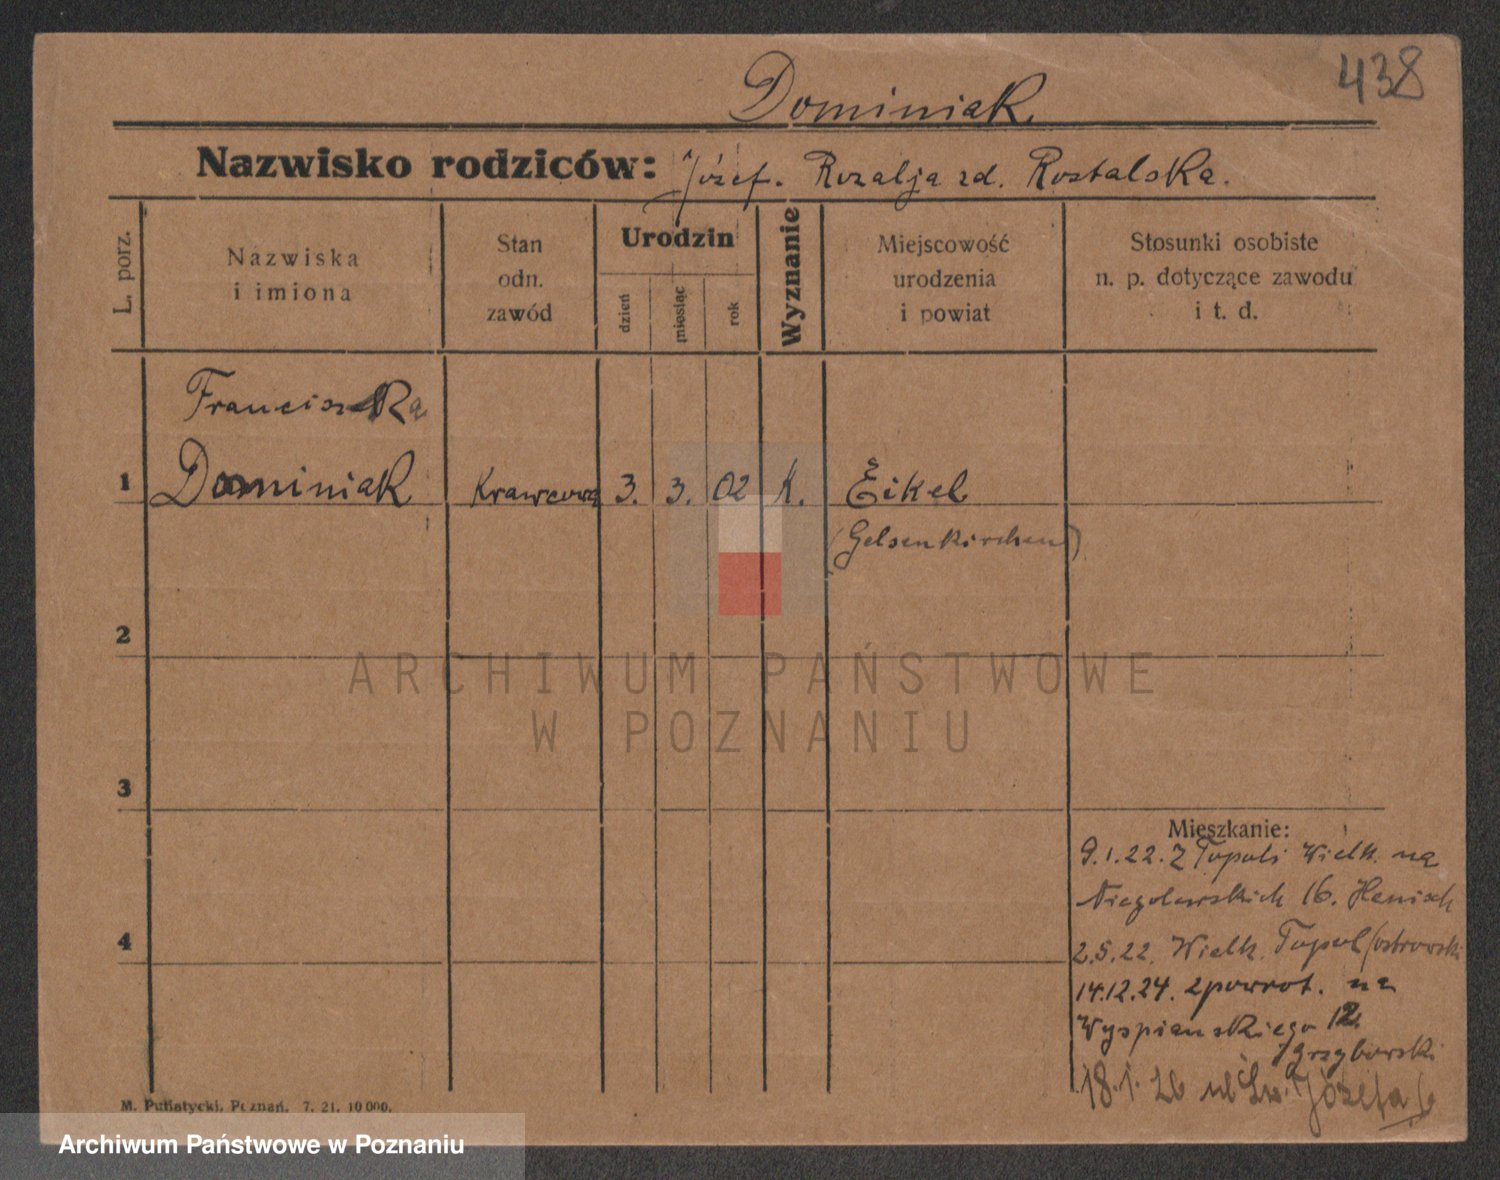 438
Dominiak
Nazwisko rodziców: Józef. Rozalja zd. Rostalska.
L. porz.
Nazwiska
i imiona
Stan
odn.
zawód
Urodzin
dzień
miesiąc
rok
Wyznanie
Miejscowość
urodzenia
i powiat
Stosunki osobiste
n. p. dotyczące zawodu
i t. d.
Franciszka
1 Dominiak Krawcowa 3. 3. 02 K. Eikel
(Gelsenkirchen)
2
ARCHIWUM PAŃSTWOWE
W POZNANIU
3
Mieszkanie:
9.1.22. Z Topoli Wielk. na
Niegolewskich 16.
4
2.5.22. Wielk. Topol (ostrowski
14.12.24. zpowrot. na
Wyspianskiego 12
Grzyborski
18.1.26 ul Św. Józefa 6
M. Putiatycki, Poznań. 7. 21. 10 000.
Archiwum Państwowe w Poznaniu